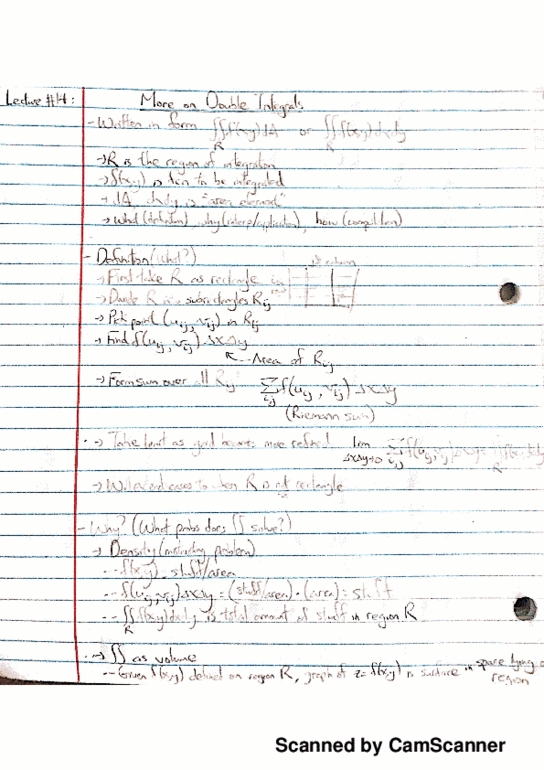 Lecture #14:
More on Double Integrals
- Written in form ∬_R f(x,y)dA or ∬_R f(x,y)dxdy
→ R is the region of integration
→ f(x,y) is fctn to be integrated
→ dA, dxdy is "area element"
→ What (definition), why (interp/application), how (computation)
- Definition (What?)
→ First take R as rectangle
→ Divide R into subrectangles Rij
→ Pick point (uij, vij) in Rij
→ Find f(uij, vij)ΔxΔy
↖-- Area of Rij
→ Form sum over all Rij: Σ_ij f(uij, vij)ΔxΔy
(Riemann sum)
→ Take limit as grid becomes more refined lim ΔxΔy→0 Σ_i,j f(uij, vij)ΔxΔy = ∬_R f(x,y)dxdy
→ Will extend cases to when R is not rectangle
- Why? (What probs does ∬ solve?)
→ Density (motivating problem)
-- f(x,y) = stuff/area
-- f(uij, vij)ΔxΔy = (stuff/area)·(area) = stuff
-- ∬_R f(x,y)dxdy is total amount of stuff in region R
→ ∬ as volume
-- Given f(x,y) defined on region R, graph of z=f(x,y) is surface in space lying
region
Scanned by CamScanner